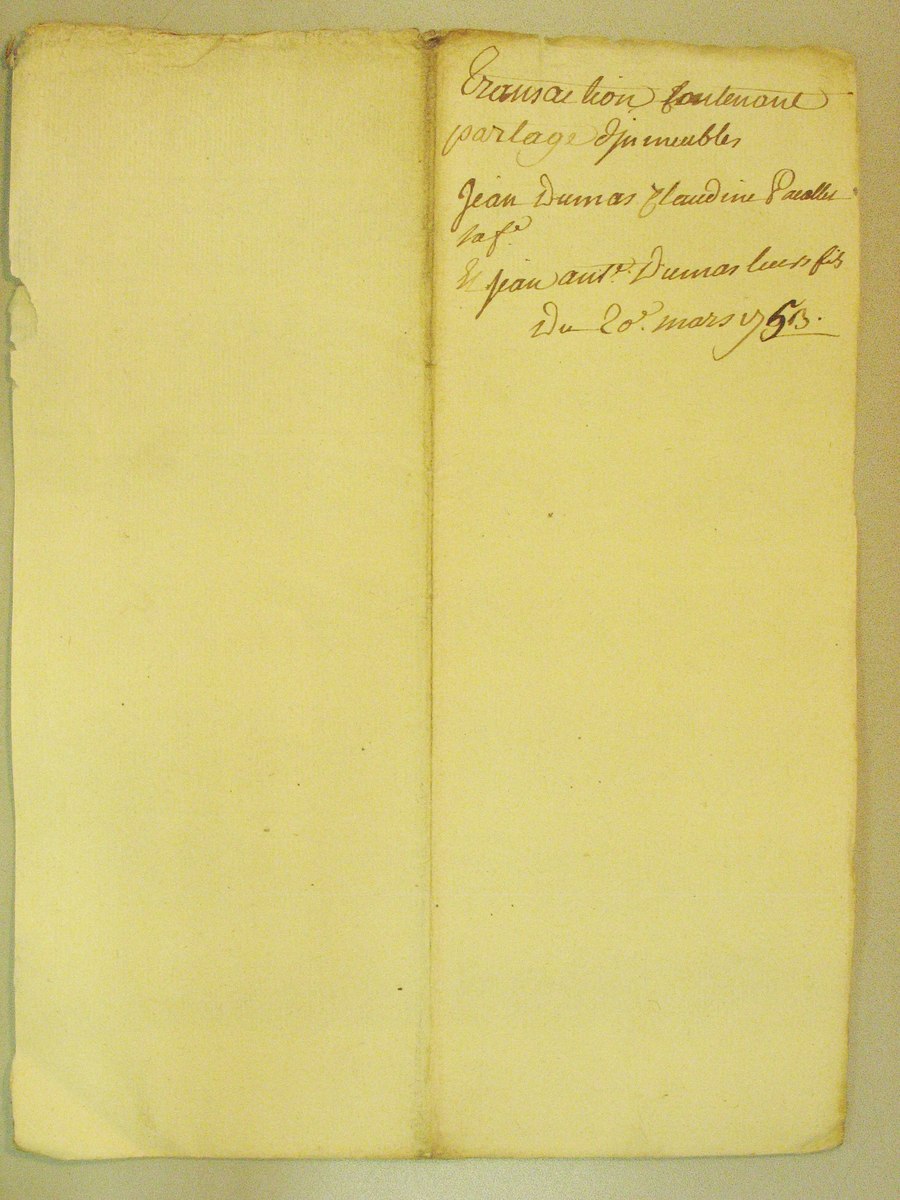 Transaction Contenant
partage d'jmmeubles
Jean Dumas Claudine
sa fe
Et jean ante. Dumas leurs fils
Du 20e. mars 1753.